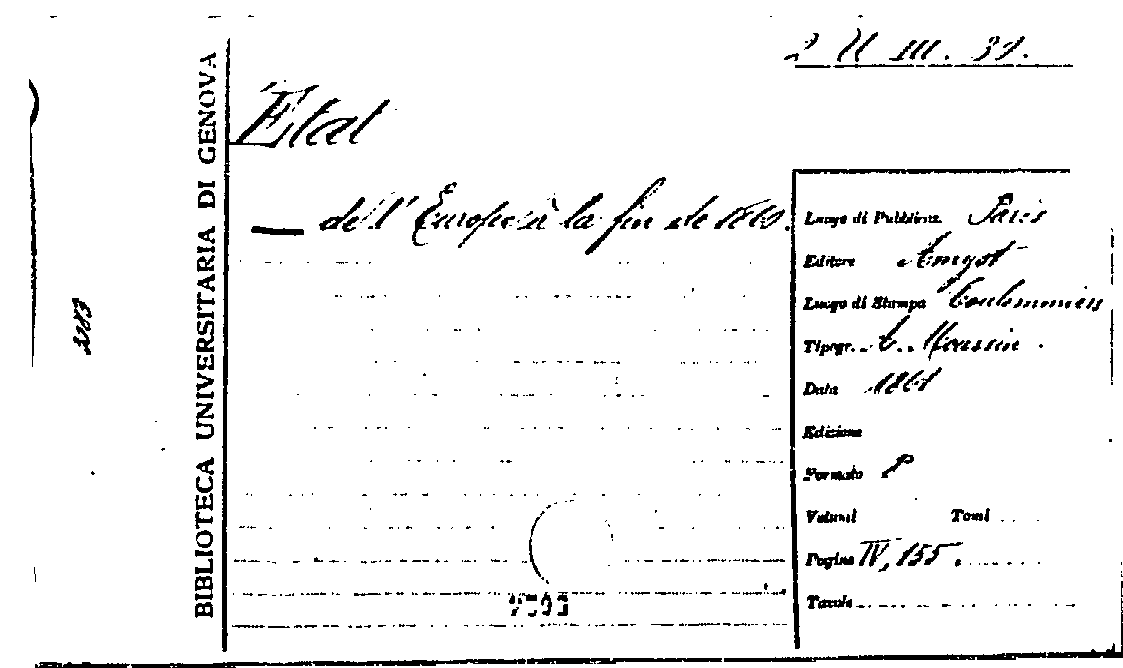 2 U III. 39.
BIBLIOTECA UNIVERSITARIA DI GENOVA
Etat
— de l'Europe à la fin de 1860.
Luogo di Pubblicaz. Paris
Editore Amyot
Luogo di Stampa Coulommiers
Tipogr. A. Moussin
Data 1861
Edizione
Formato 8
Volumi Tomi
Pagine IV, 155.
Tavole